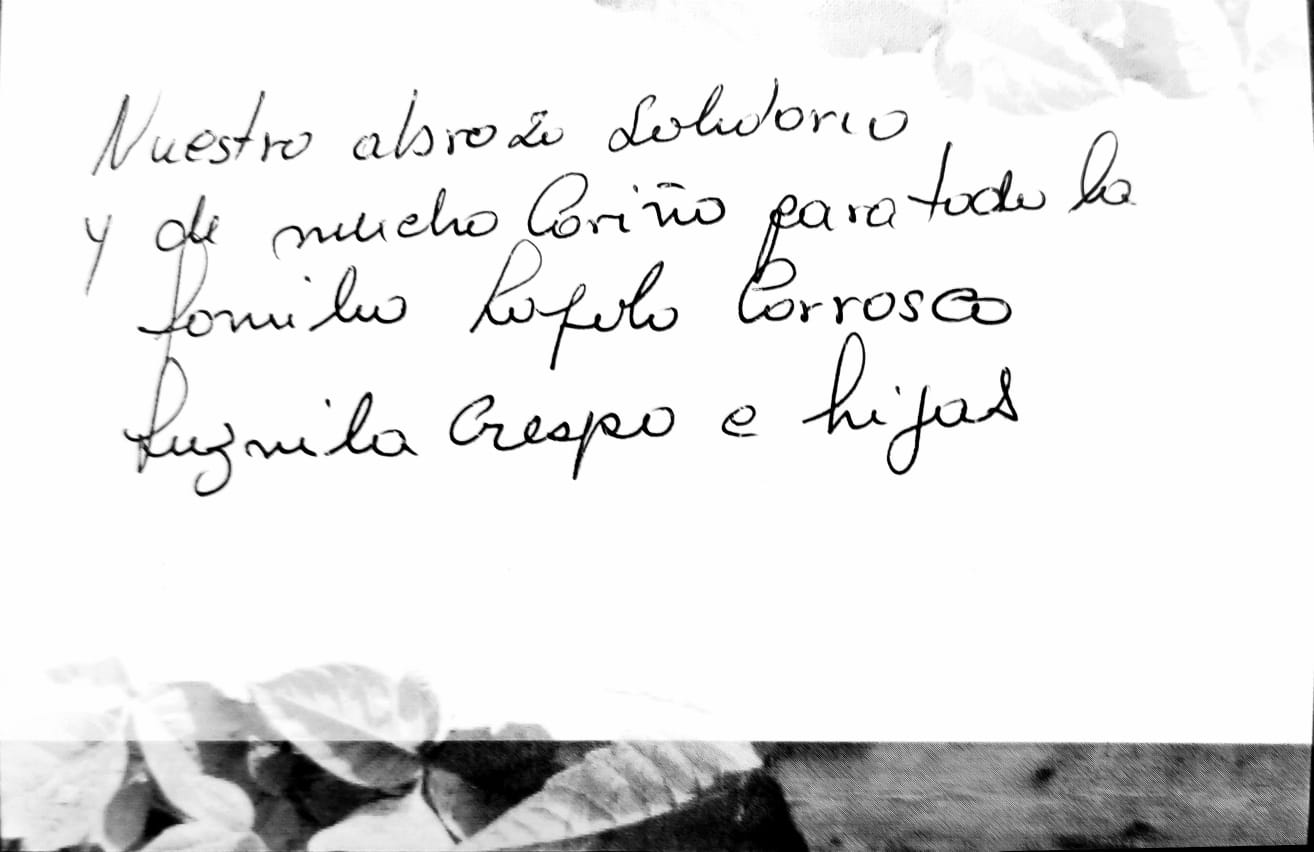 Nuestro abrazo solidario
y de mucho Cariño para toda la
familia Rafela Carrasco
Luzmila Crespo e hijas